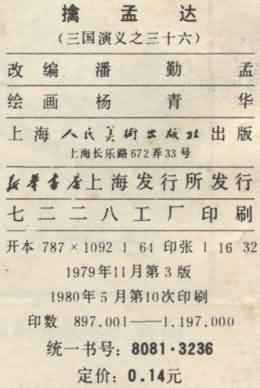 擒孟达
(三国演义之三十六)
改编 潘勤孟
绘画 杨青华
上海人民美术出版社出版
上海长乐路672弄33号
新华书店上海发行所发行
七二二八工厂印刷
开本 787×1092 1 64 印张 1 16 32
1979年11月第3版
1980年5月第10次印刷
印数 897.001——1.197.000
统一书号：8081·3236
定价：0.14元